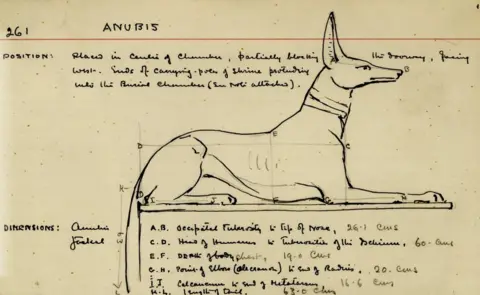 261
ANUBIS
POSITION: Placed in Centre of Chamber, partially blocking the doorway, facing
West. Ends of carrying-poles of Shrine protruding
into the Burial Chamber (See Note attached).
A
B
C
D
E
F
H
DIMENSIONS: Anubis Jackal
A.B. Occipital Tuberosity to tip of Nose, 26.1 Cms
C.D. Head of Humerus to Tuberosities of the Ischium, 60. Cms
E.F. Depth of body chest, 19.0 Cms
G.H. Point of Elbow (Olecranon) to end of Radius, 20. Cms
I.J. Calcaneum to end of Metatarsus 16.6 Cms
K-L. Length of Tail, 63.0 Cms